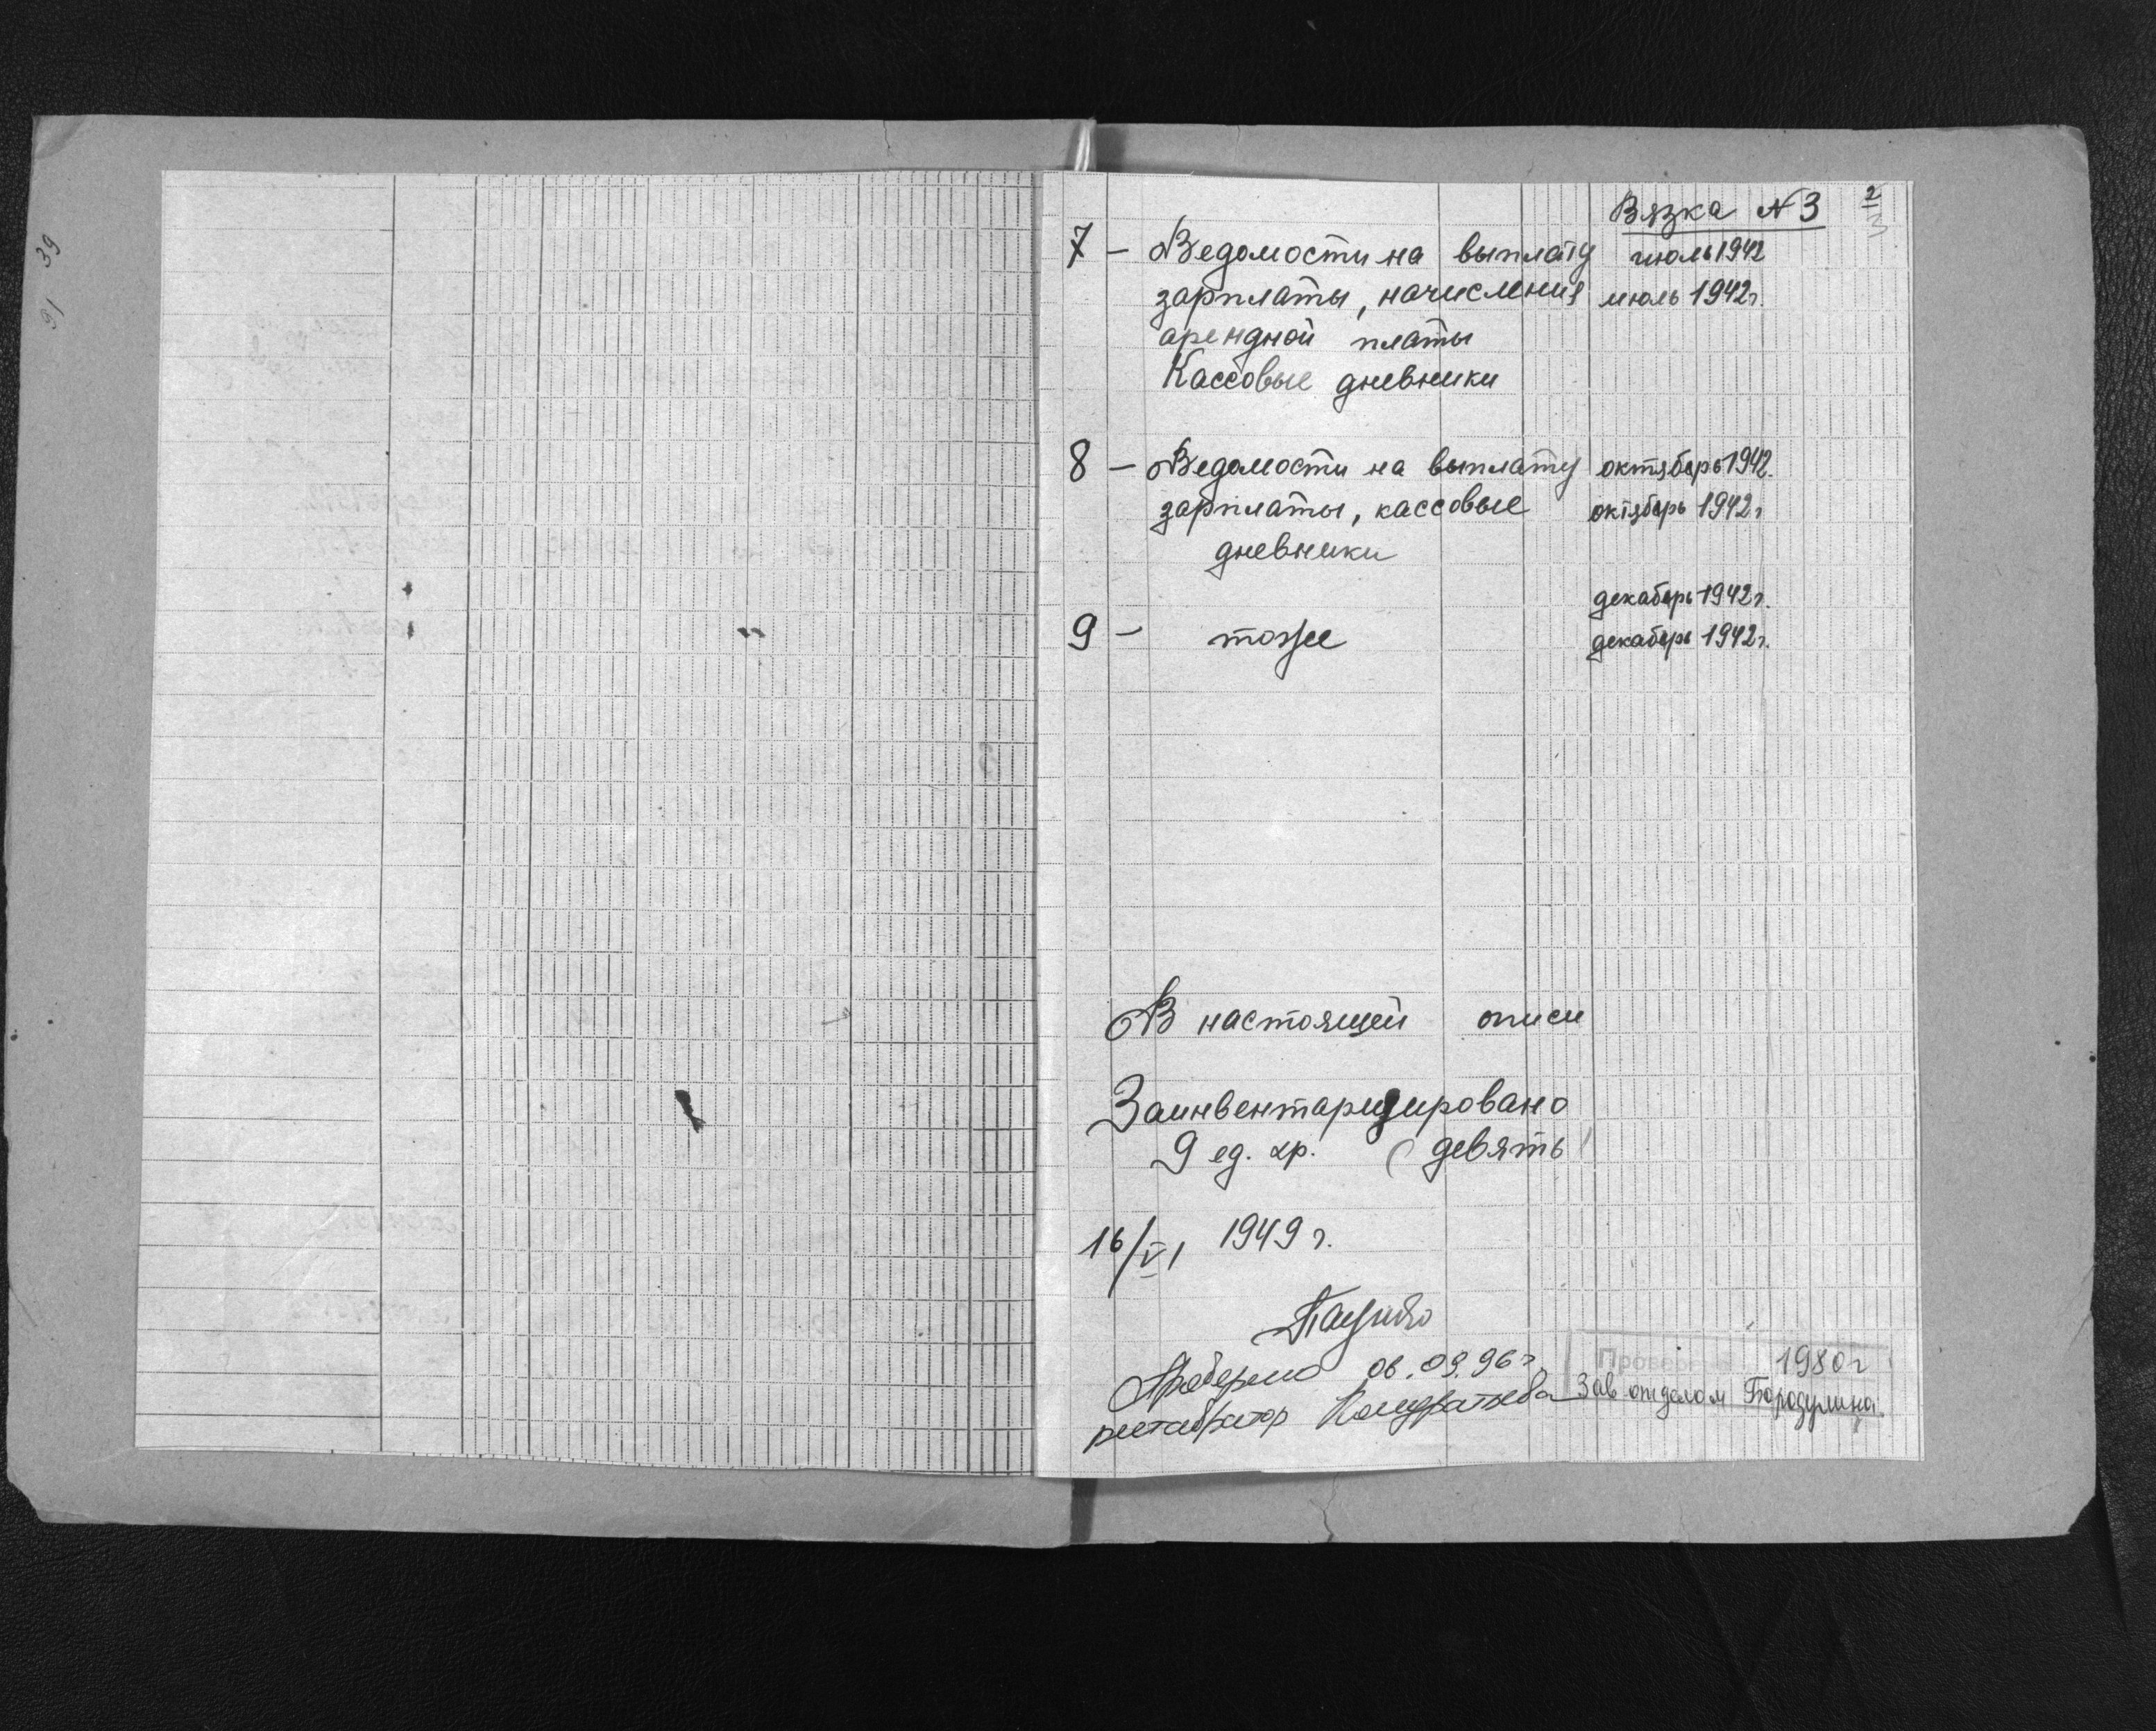 39
91
Вязка N 3
2
3
7 – Ведомости на выплату июль 1942
зарплаты, начисления июль 1942г.
арендной платы
Кассовые дневники
8 – Ведомости на выплату октябрь 1942.
зарплаты, кассовые октябрь 1942г
дневники
декабрь 1942г.
9 – тоже декабрь 1942г.
В настоящей описи
Заинвентаризировано
9 ед. хр. (девять)
16/VI 1949 г.
Проверено 06.09.96г.
реставратор Кондратьева
Провер 1980г
Зав отделом Бородулина.